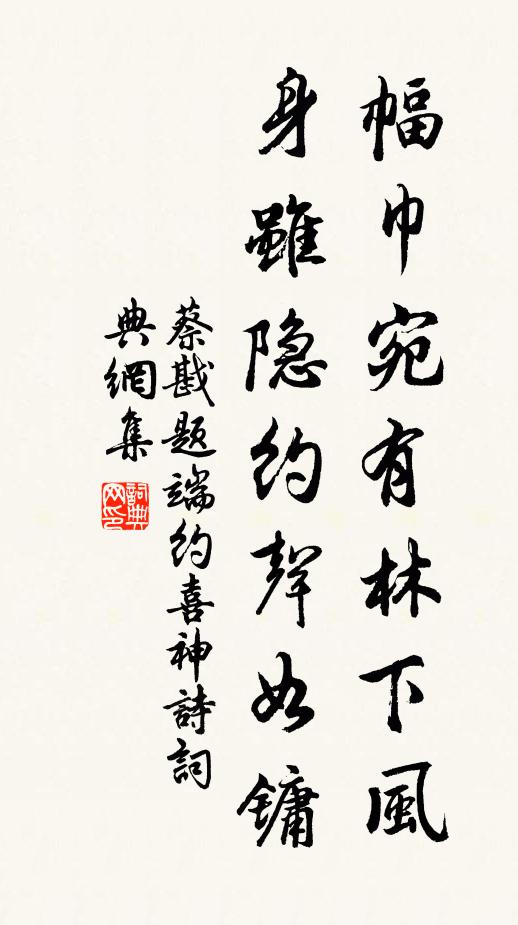 幅巾宛有林下風
身雖隐約聲如鏞
蔡戡題端約喜神詩詞
典網集
詞典
网印